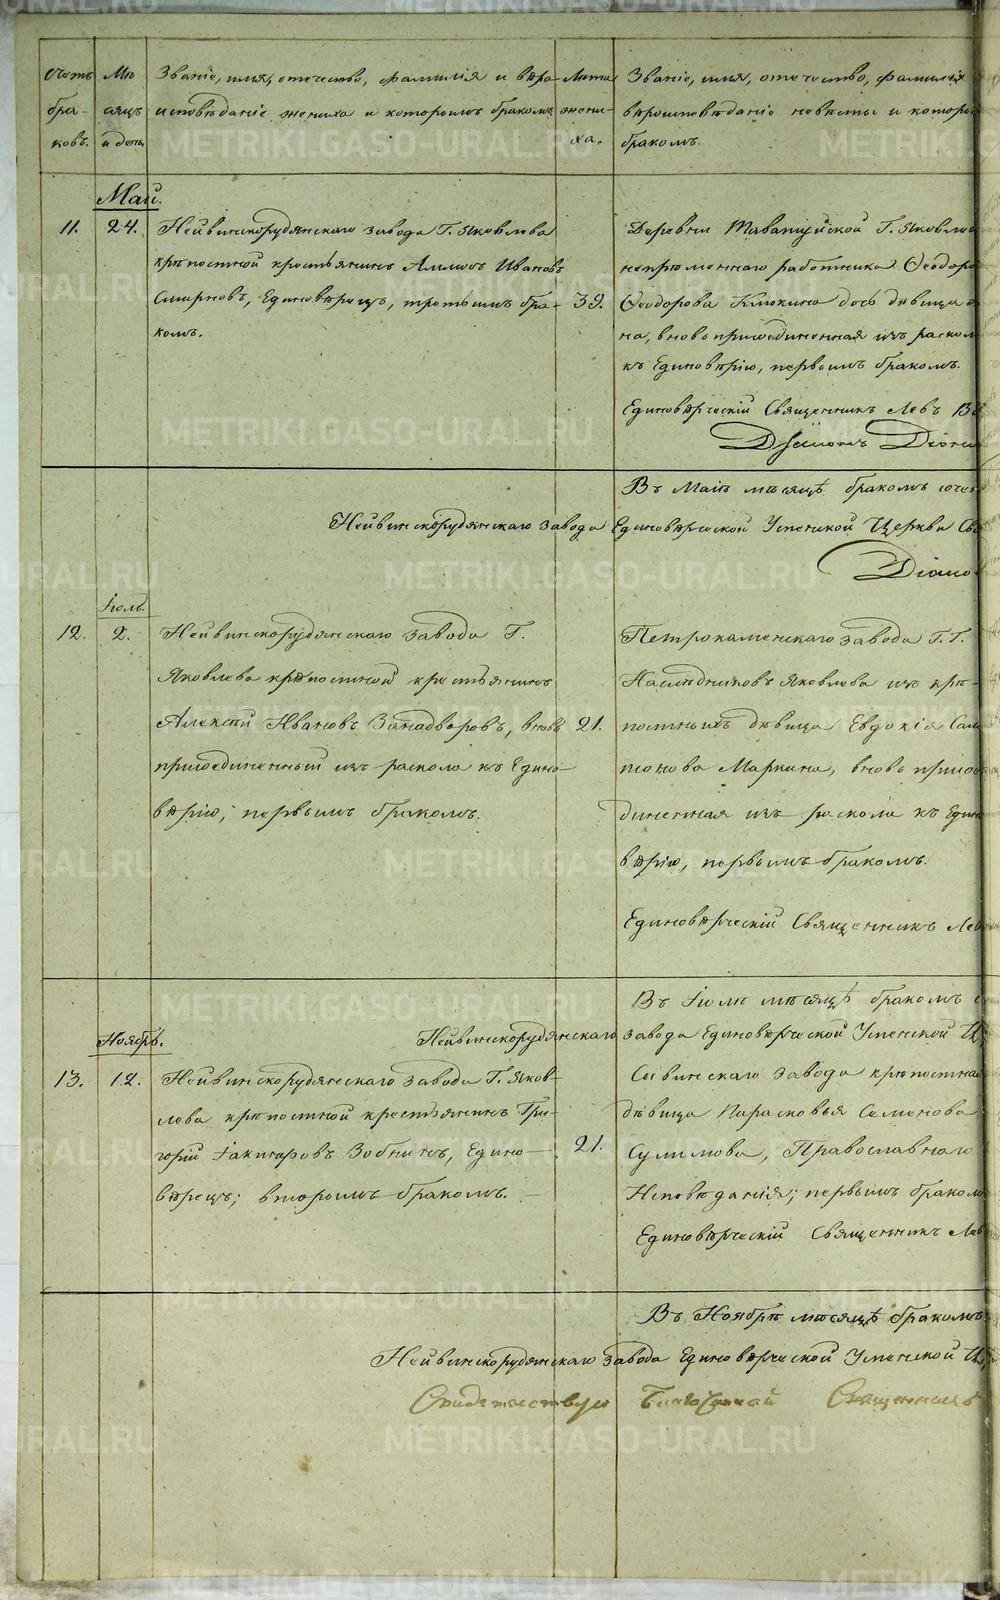 Счетъ браковъ.
Мѣсяцъ и день
Званіе, имя, отечество, фамилія и вѣроисповѣданіе жениха и которымъ бракомъ
Лѣта жениха.
Званіе, имя, отечество, фамилія
вѣроисповѣданіе невѣсты и котор
бракомъ.
Май.
11. 24. Нейвинскорудянскаго завода Г. Яковлева
крѣпостной крестьянинъ Ивановъ
Смирновъ, Единовѣрецъ, третьимъ бра-
комъ.
39.
Деревни Таватуйской Г. Яковле
непремѣннаго работника Ѳеодора
Ѳеодорова Клюкина дочь дѣвица
на, вновь присоединенная изъ раскол
къ Единовѣрію, первымъ бракомъ.
Единовѣрческій Священникъ Левъ
Въ Маіѣ мѣсяцѣ бракомъ сочет
Нейвинскорудянскаго завода Единовѣрческой Успенской Церкви Св
Іюль.
12. 2. Нейвинскорудянскаго завода Г.
Яковлева крѣпостной крестьянинъ
Алексѣй Ивановъ Западворовъ, вновь
присоединенный изъ раскола къ Едино-
вѣрію; первымъ бракомъ.
21.
Петрокаменскаго завода Г. Г.
Наслѣдниковъ Яковлева изъ крѣ-
постныхъ дѣвица Евдокія Сам
сонова Маркина, вновь присое
диненная изъ раскола къ Един
вѣрію, первымъ бракомъ.
Единовѣрческій Священникъ Лев
Въ Іюлѣ мѣсяцѣ бракомъ с
Нейвинскорудянскаго завода Единовѣрческой Успенской Ц
Ноябрь.
13. 12. Нейвинскорудянскаго завода Г. Яков-
лева крѣпостной крестьянинъ Гри-
горій Зобнинъ, Едино-
вѣрецъ; вторымъ бракомъ.
21.
Сывинскаго завода крѣпостная
дѣвица Парасковья Семенова
Сулимова, Православнаго
Исповѣданія; первымъ браком
Единовѣрческій Священникъ Лев
Въ Ноябрѣ мѣсяцѣ бракомъ
Нейвинскорудянскаго завода Единовѣрческой Успенской Ц
Свидетельствую Благочинный Священникъ
METRIKI.GASO-URAL.RU